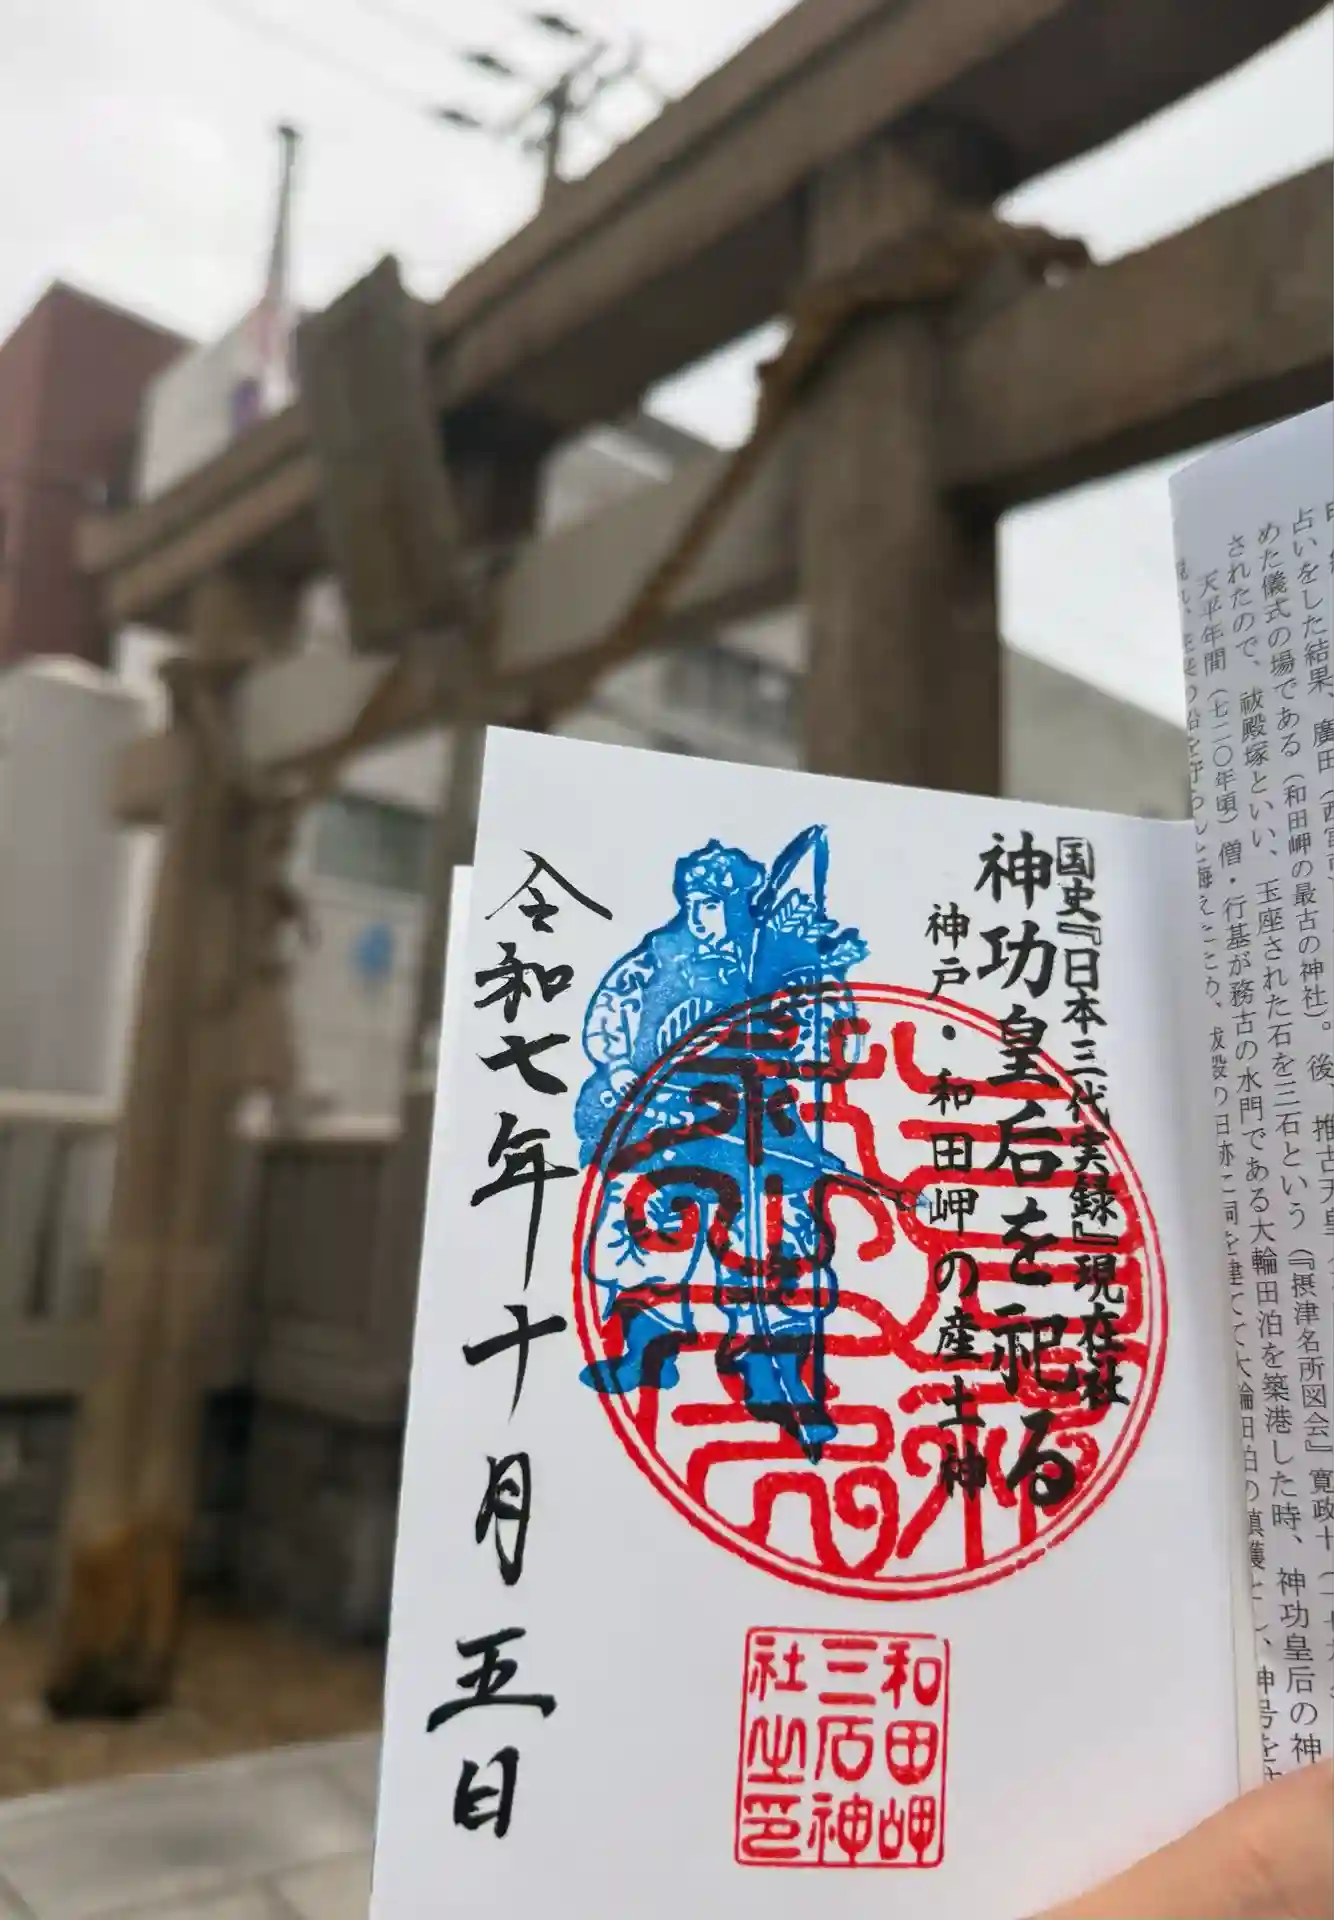 国史『日本三代実録』現在社
神功皇后を祀る
神戸・和田岬の産土神
令和七年十月五日
和田岬
三石神
社之印
占いをした結果、廣田(西宮
めた儀式の場である(和田岬の最古の神社)。後、推古天皇
されたので、祓殿塚といい、玉座された石を三石という(『摂津名所図会』寛政十
天平年間(七二〇年頃)僧・行基が務古の水門である大輪田泊を築港した時、神功皇后の神